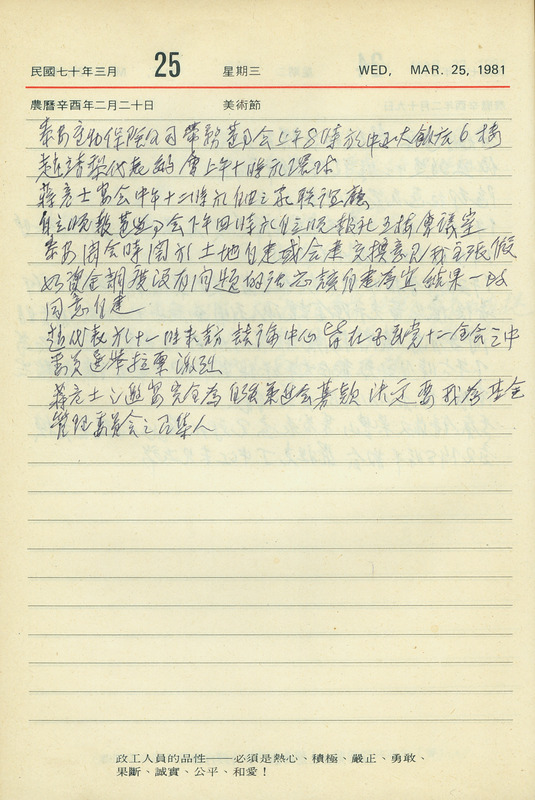 民國七十年三月 25 星期三 WED, MAR. 25, 1981
農曆辛酉年二月二十日 美術節
泰安產物保險公司常務董事會上午8時於中正大飯店6樓
趙 代表 上午十時
蔣彥士 會中午十二時於 之家聯誼廳
自立晚報董監事會下午四時於自立晚報社五樓會議室
泰安開會時關於土地自建或合建交換意見我主張假
如資金調度沒有問題的話 自建為宜結果一致
同意自建
代表 十一時 中心 皆在 黨十二全會之中
委員選舉拉票激烈
蔣彥士之 會完全為自強 募款決定要我為基金
管理委員會之召集人
政工人員的品性——必須是熱心、積極、嚴正、勇敢、
果斷、誠實、公平、和愛！